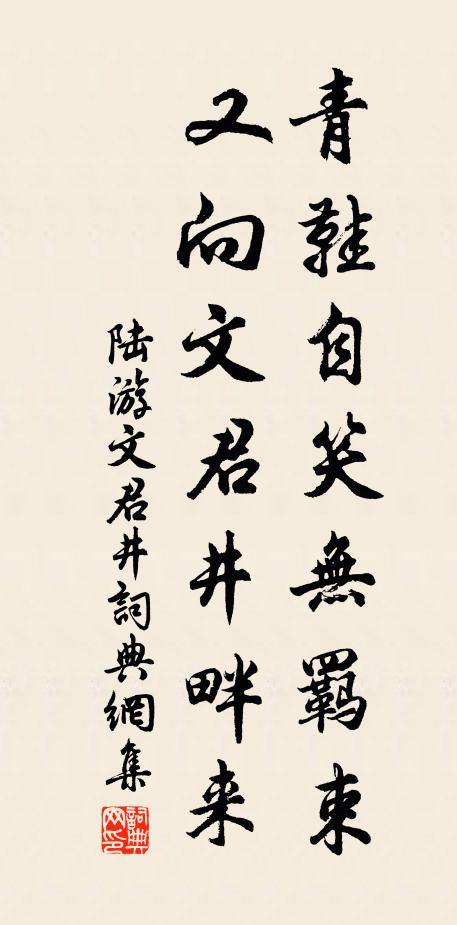 青鞋自笑無羈束
又向文君井畔来
陆游文君井詞典網集
詞典網印